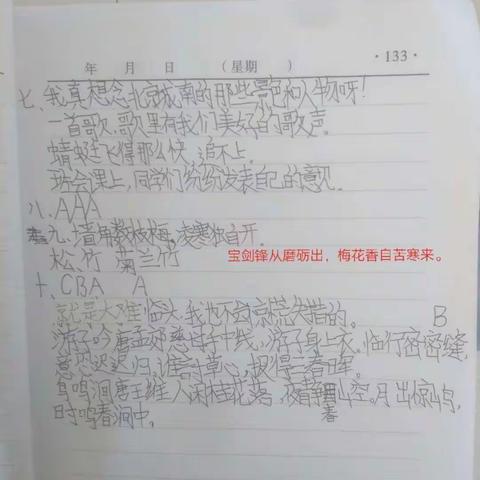 ·133·
年 月 日 （星期 ）
七、我真想念北京城南的那些景色和人物呀！
一首歌,歌里有我们美好的歌声。
蜻蜓飞得那么快,追不上。
班会课上,同学们纷纷发表自己的意见。
八、AAA
九、墙角数枝梅,凌寒独自开。
松、竹 菊兰竹 宝剑锋从磨砺出，梅花香自苦寒来。
十、CBA A
就是大难临头,我也不会惊慌失措的。 B
游子吟唐孟郊慈母手中线,游子身上衣。临行密密缝,
意恐迟迟归,谁言寸草心,报得三春晖。
鸟鸣涧唐王维人闲桂花落,夜静春山空。月出惊山鸟,
时鸣春涧中。